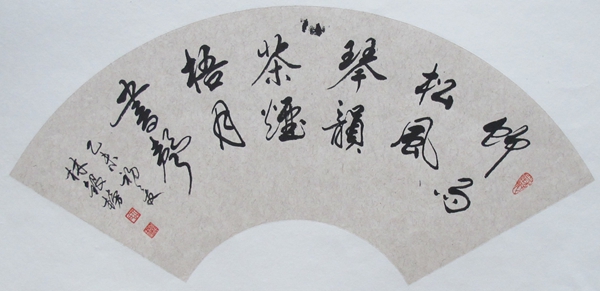 竹雨
松風
琴韻
茶煙
梧月
書聲
乙未初夏